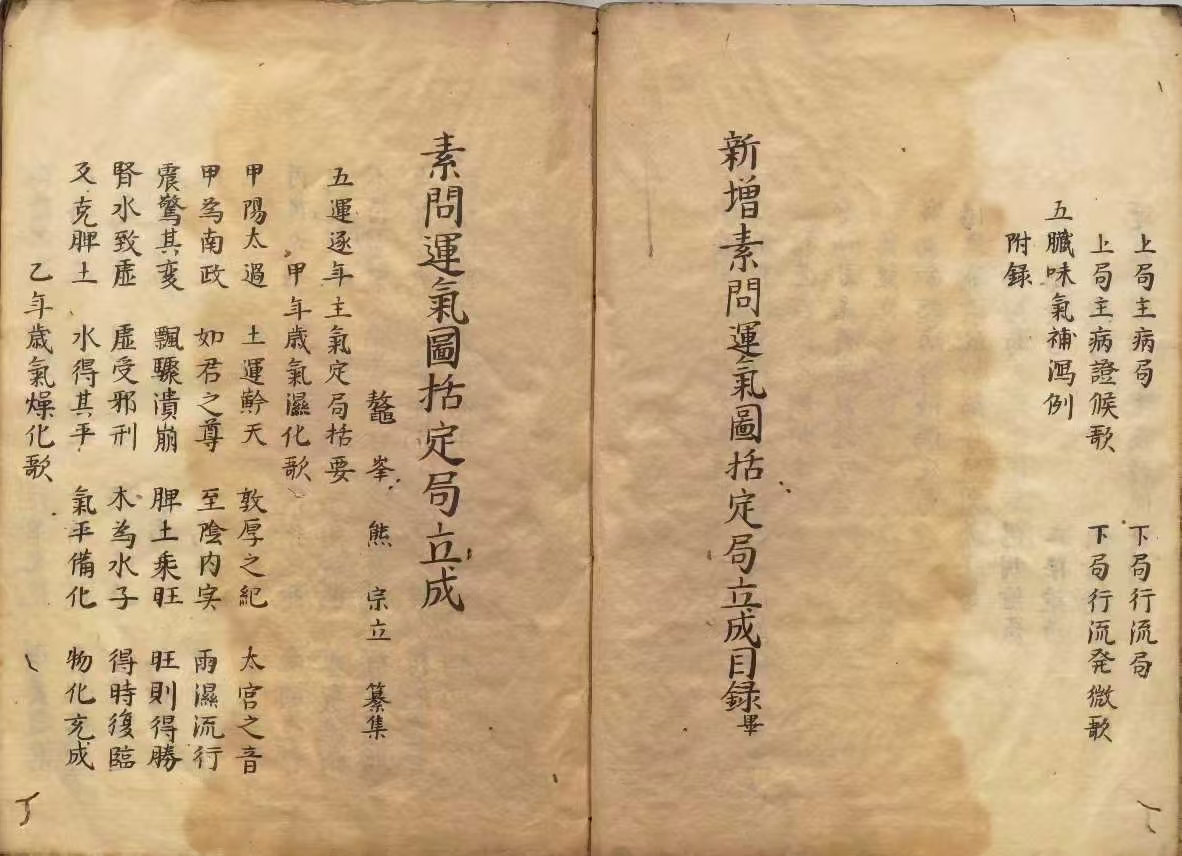 上局主病局　下局行流局
上局主病證候歌　下局行流発微歌
五臓味氣補瀉例
附録
新增素問運氣圖括定局立成目録畢
素問運氣圖括定局立成
鼇峯　熊　宗立　纂集
五運逐年主氣定局括要
甲年歲氣濕化歌
甲陽太過　土運黅天　敦厚之紀　太宮之音
甲為南政　如君之尊　至陰内实　雨濕流行
震驚其変　飄驟潰崩　脾土乘旺　旺則得勝
腎水致虛　虛受邪刑　木為水子　得時復臨
反克脾土　水得其平　氣平備化　物化充成
乙年歲氣燥化歌